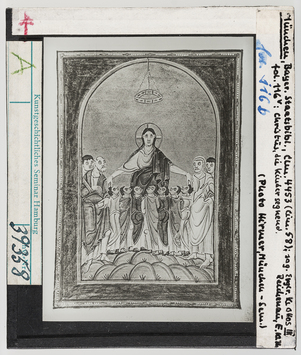 A
Kunstgeschichtliches Seminar Hamburg
39358
fol. 116b
München, Bayer. Staatsbibl., Clm. 4453 (Cim. 58), sog. Evglr. K. Ottos III
fol. 116v: Christus, die Kinder segnend.
Reichenau, E. 10. Jh.
(Photo Hirmer, München - Sem.)